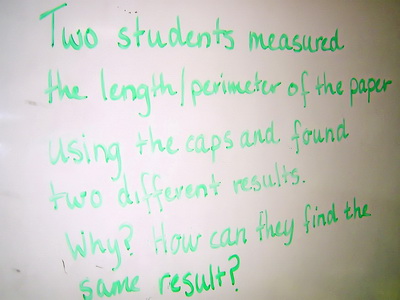 Two students measured
the length/perimeter of the paper
using the caps and found
two different results.
Why? How can they find the
same result?